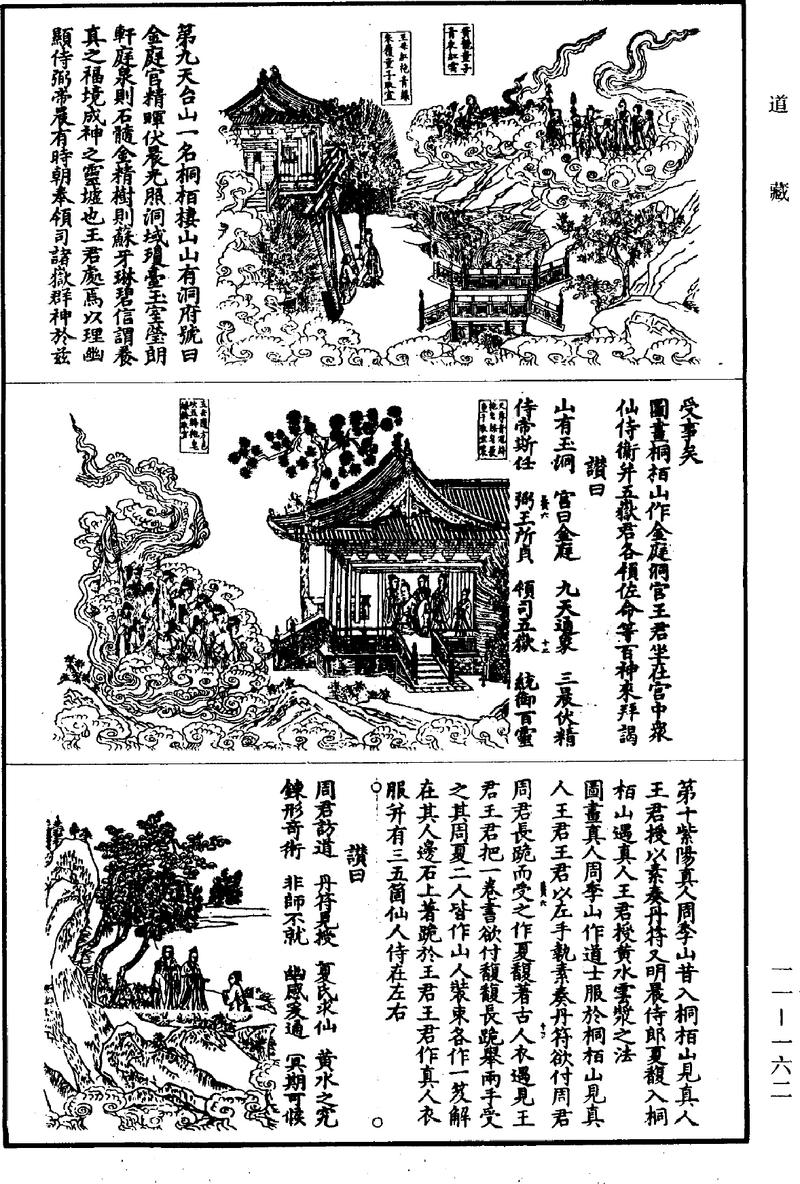 道藏
第九天台山一名桐栢棲山山有洞府號曰
金庭宮精暉伏晨光照洞域瓊臺玉室瑩朗
軒庭泉則石髓金精樹則蘇牙琳碧信謂養
真之福境成神之靈墟也王君處焉以理幽
顯侍弼帝晨有時朝奉領司諸嶽群神於茲
受事矣
圖畫桐栢山作金庭洞宮王君坐在宮中衆
仙侍衛并五嶽君各領佐命等百神來拜謁
讚曰
山有玉洞 宮曰金庭 九天通象 三晨伏精
侍帝斯任 弼王所貞 領司五嶽 統御百靈
第十紫陽真人周季山昔入桐栢山見真人
王君授以素奏丹符又明晨侍郎夏馥入桐
栢山遇真人王君授黃水雲漿之法
圖畫真人周季山作道士服於桐栢山見真
人王君王君以左手執素奏丹符欲付周君
周君長跪而受之作夏馥著古人衣遇見王
君王君把一卷書欲付馥馥長跪舉兩手受
之其周夏二人皆作山人裝束各作一笈解
在其人邊石上著跪於王君王君作真人衣
服并有三五箇仙人侍在左右
讚曰
周君訪道 丹符見授 夏氏求仙 黃水之究
鍊形奇術 非師不就 幽感爰通 冥期可候
一一—一六二